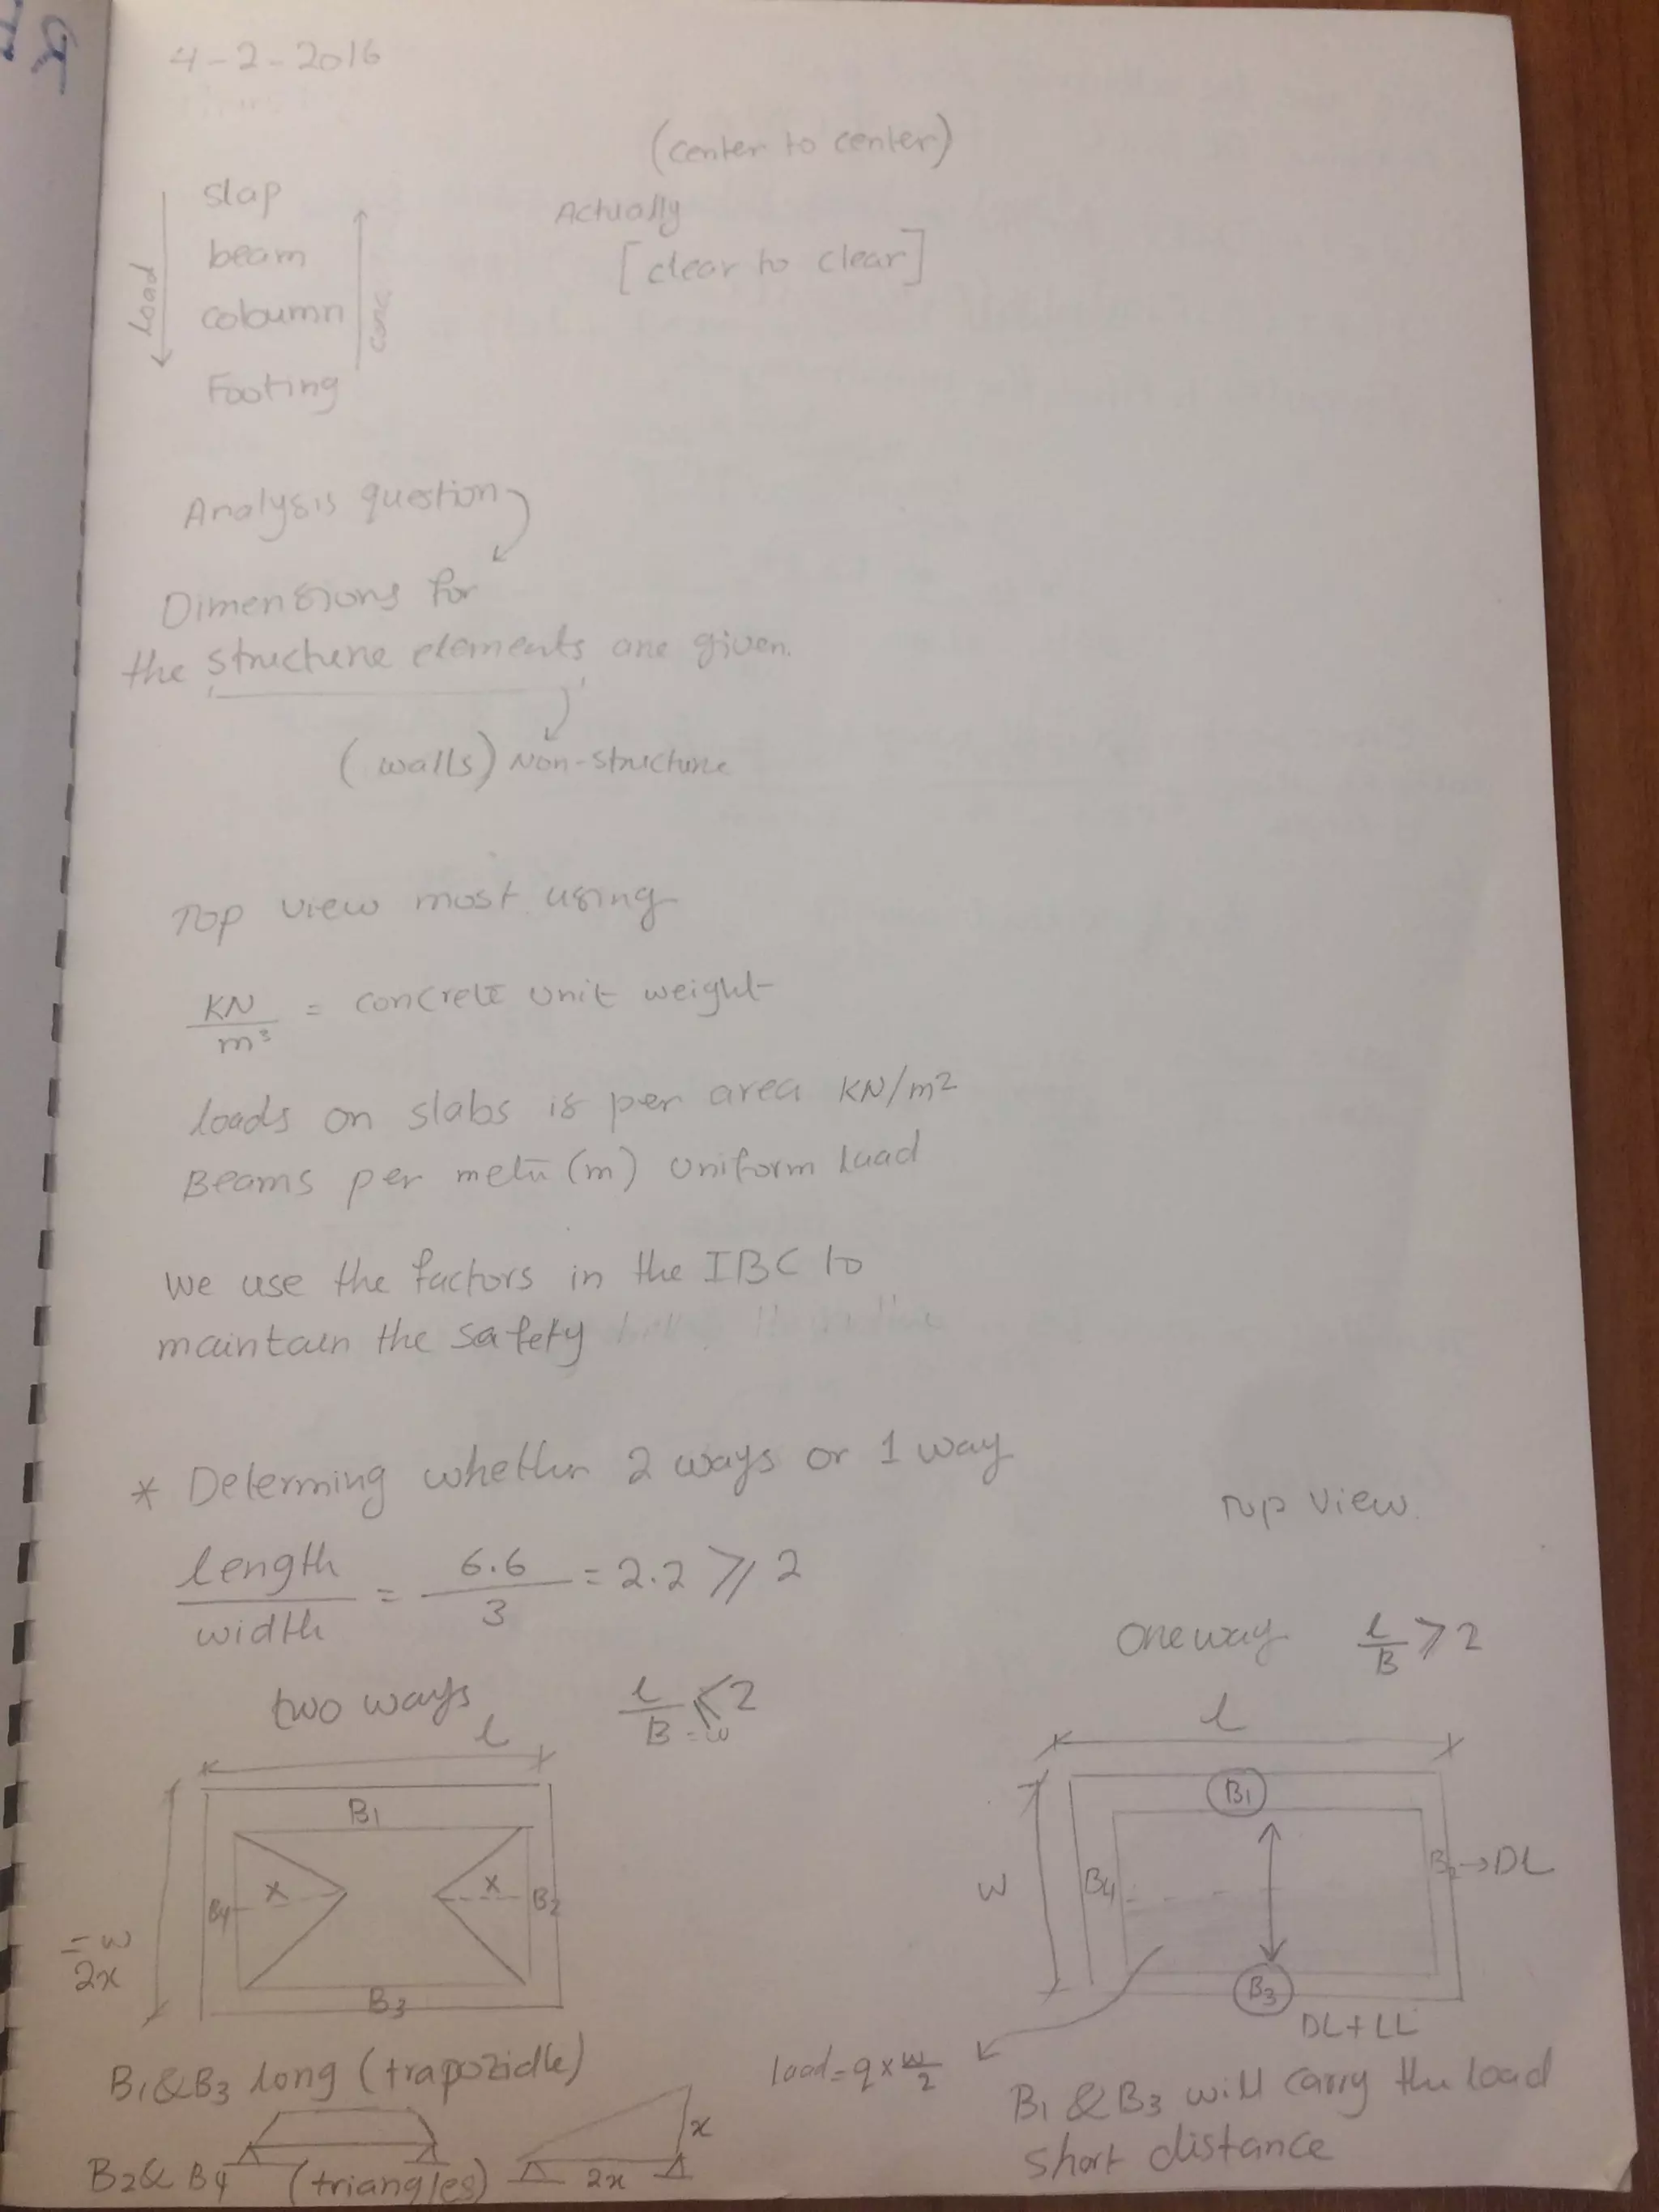 4-2-2016
(center to center)
slap
Actually
beam
[clear to clear]
Load
coloumn
conc
Footing
Analysis question
Dimensions for
the structure elements are given.
(walls) Non-structure
Top view most using
KN/m³ = concrete unit weight
loads on slabs is per area KN/m2
Beams per meter (m) uniform load
we use the factors in the IBC to
maintain the safety
* Determing whether 2 ways or 1 way
Top view.
length/width = 6.6/3 = 2.2 ⩾ 2
one way l/B ⩾ 2
two ways l/B=w ⩽ 2
l
l
B1
B1
x
x
B4
B2
w
B4
B2 → DL
= w
2x
B3
B3
DL+LL
B1 & B3 long (trapozidle)
load = q x w/2
B1 & B3 will carry the load
short distance
x
B2 & B4 (triangles)
2x